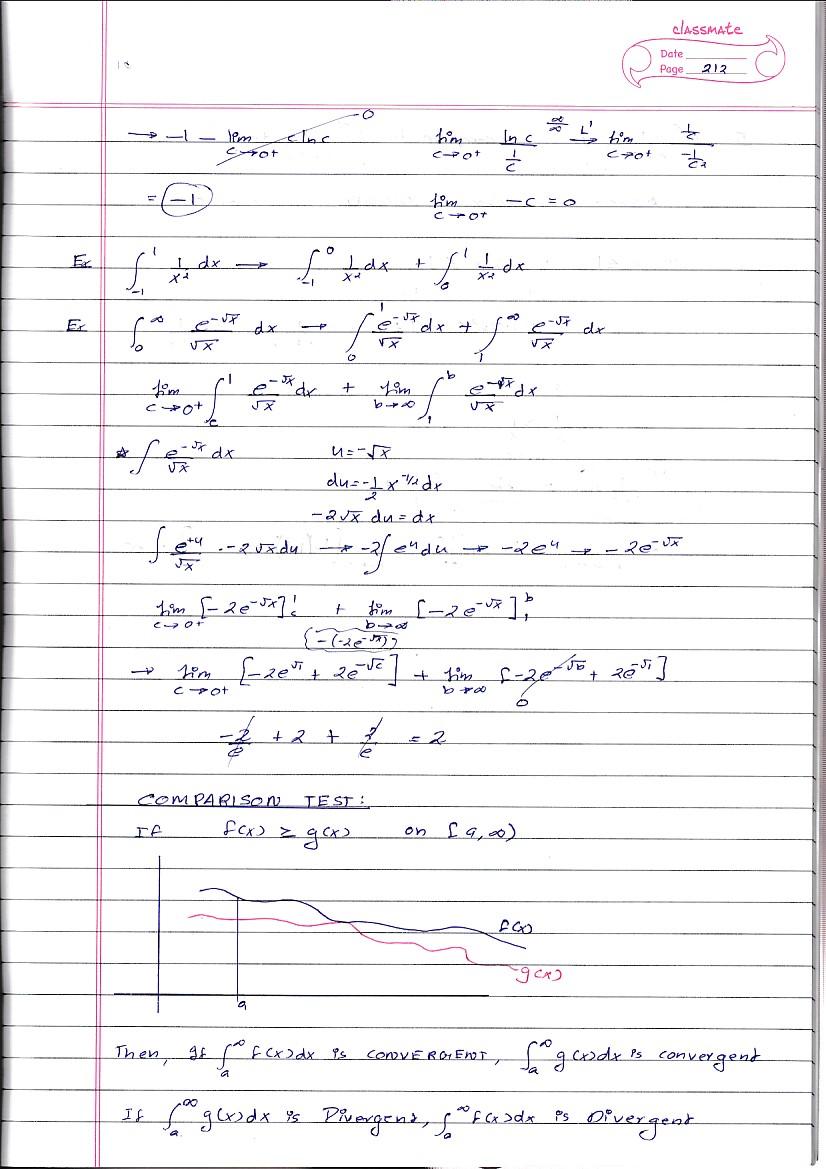 classmate
Date
Page 212
→ -1 - lim c→0+ c ln c 0    lim c→0+ ln c / (1/c) ∞/∞ L' → lim c→0+ (1/c) / (-1/c²)
= -1    lim c→0+ -c = 0
Ex ∫₋₁¹ 1/x² dx → ∫₋₁⁰ 1/x² dx + ∫₀¹ 1/x² dx
Ex ∫₀^∞ e^-√x/√x dx → ∫₀¹ e^-√x/√x dx + ∫₁^∞ e^-√x/√x dx
lim c→0+ ∫_c^1 e^-√x/√x dx + lim b→∞ ∫₁^b e^-√x/√x dx
* ∫ e^-√x/√x dx    u = -√x
du = -1/2 x^-1/2 dx
-2√x du = dx
∫ e^+u/√x · -2√x du → -2∫ e^u du → -2e^u → -2e^-√x
lim c→0+ [-2e^-√x]_c^1 + lim b→∞ [-2e^-√x]_1^b
{-(-2e^-√x)}
→ lim c→0+ [-2e^√1 + 2e^-√c] + lim b→∞ [-2e^-√b + 2e^-√1]
0
-2/e + 2 + 2/e = 2
COMPARISON TEST:
If f(x) ≥ g(x) on [a, ∞)
f(x)
g(x)
a
Then, If ∫_a^∞ f(x)dx is CONVERGENT, ∫_a^∞ g(x)dx is convergent
If ∫_a^∞ g(x)dx is Divergent, ∫_a^∞ f(x)dx is Divergent